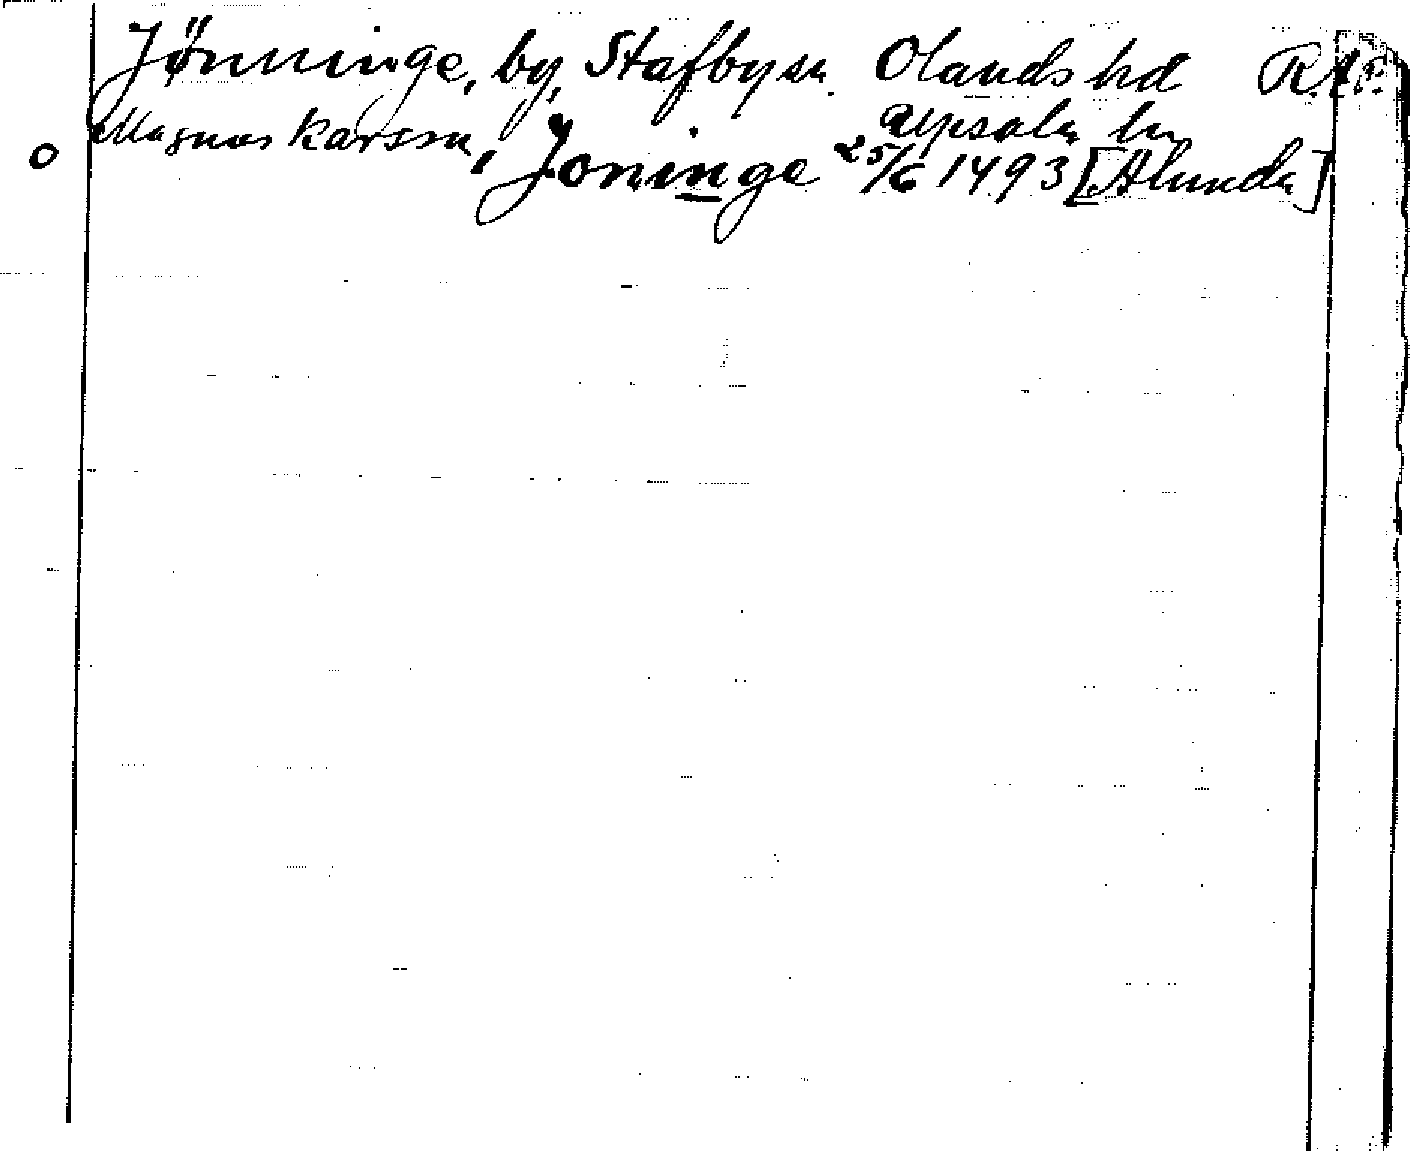 Jönninge, by, Stafby sn. Olands hd R.A.
Upsala län
o Magnus Karsson, Joninge 25/6 1493 [Alunda]